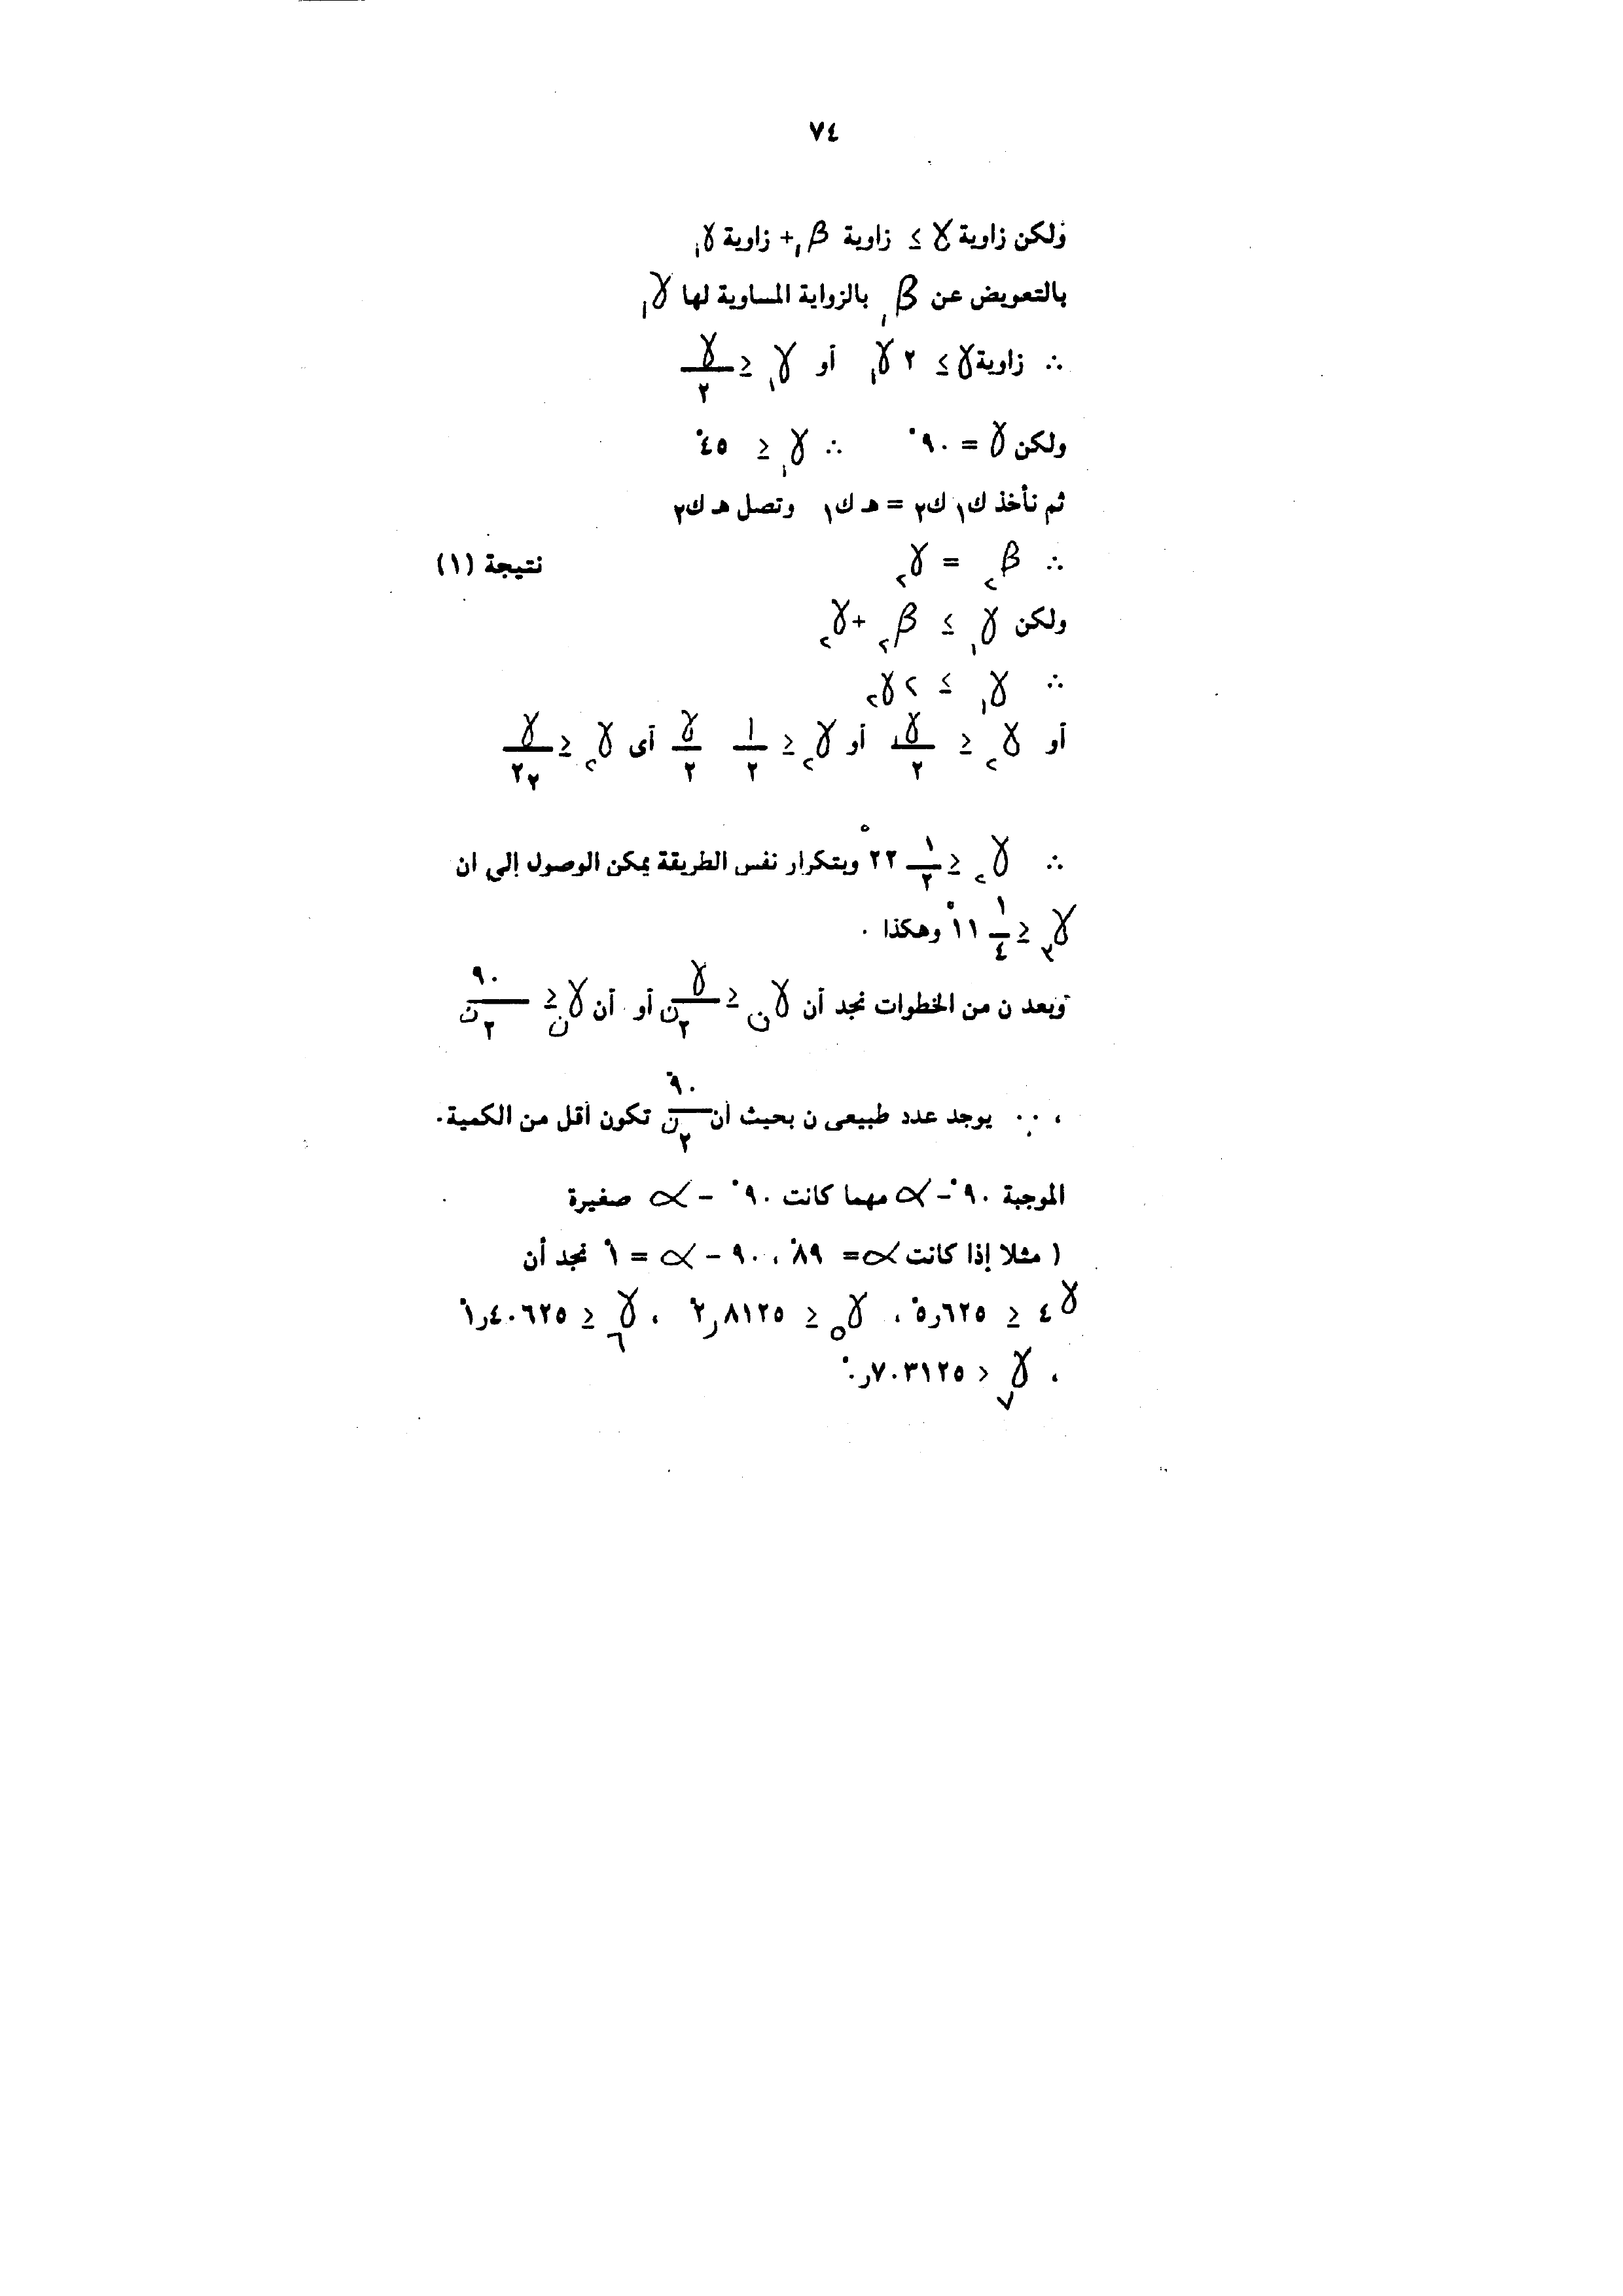 ٧٤
ولكن زاوية γ ≥ زاوية β₁ + زاوية γ₁
بالتعويض عن β₁ بالزواية المساوية لها γ₁
∴ زاوية γ ≥ ٢ γ₁ أو γ₁ ≤ γ/٢
ولكن γ = ٩٠° ∴ γ₁ ≤ ٤٥°
ثم نأخذ ك١ ك٢ = هـ ك١ وتصل هـ ك٢
∴ β₂ = γ₂ نتيجة (١)
ولكن γ₁ ≥ β₂ + γ₂
∴ γ₁ ≥ ٢ γ₂
أو γ₂ ≤ γ₁/٢ أو γ₂ ≤ ١/٢ γ/٢ أى γ₂ ≤ γ/٢٢
∴ γ₂ ≤ ١/٢ ٢٢° وبتكرار نفس الطريقة يمكن الوصول إلى ان
γ₃ ≤ ١/٤ ١١° وهكذا .
وبعد ن من الخطوات نجد أن γن ≤ γ/٢ن أو أن γن ≤ ٩٠/٢ن
، ∵ يوجد عدد طبيعى ن بحيث أن ٩٠°/٢ن تكون أقل من الكمية.
الموجبة ٩٠° – α مهما كانت ٩٠° – α صغيرة
( مثلا إذا كانت α = ٨٩° ، ٩٠ – α = ١° نجد أن
γ٤ ≤ ٥٫٦٢٥° ، γ٥ ≤ ٢٫٨١٢٥° ، γ٦ ≤ ١٫٤٠٦٢٥°
، γ٧ < ٠٫٧٠٣١٢٥°